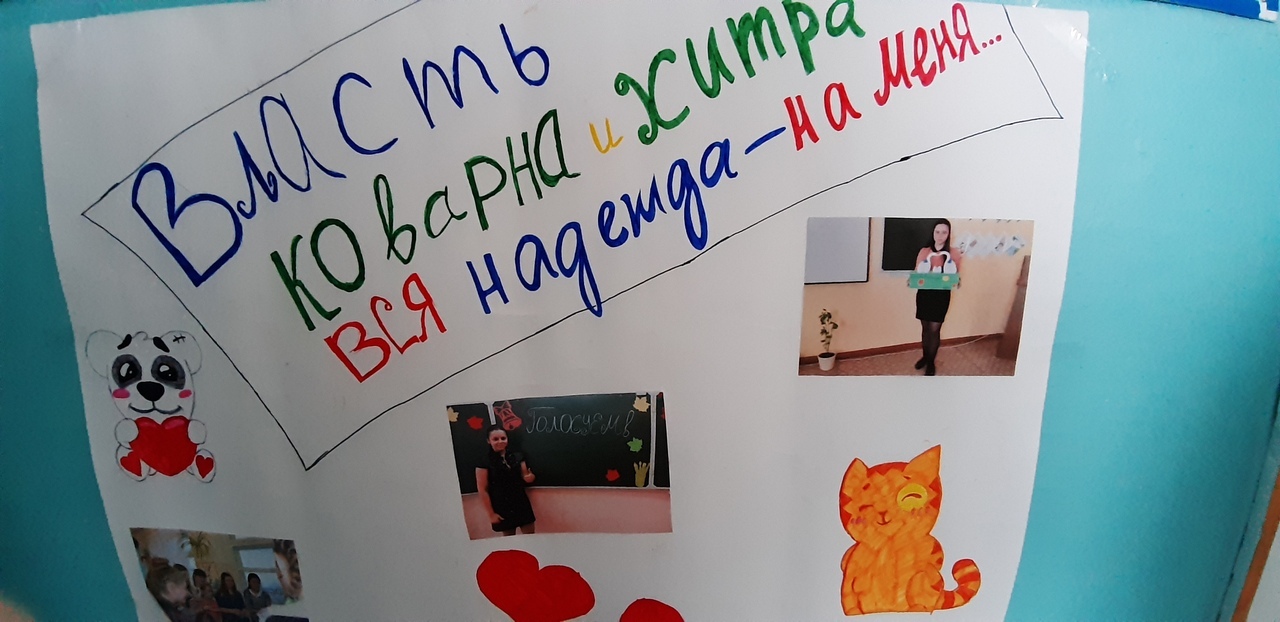 Власть
коварна и хитра
вся надежда - на меня...
Голосуем в